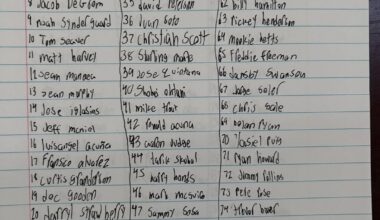 8 Jacob DeGrom
9 noah Synderguard
10 Tom Seaver
11 matt harvey
12 Sean manaea
13 Sean murphy
14 Jose iglasias
15 Jeff mcniel
16 luisangel acuña
17 Fransico alvarez
18 curtis granderson
19 doc gooden
20 darryl strawberry
35 david peterson
36 Juan Soto
37 Christian Scott
38 Starling marte
39 Jose Quintana
40 Shohei ohtani
41 mike trout
42 Ronald acuna
43 aaron Judge
44 tarik skubal
45 barry bonds
46 mark mcguire
47 Sammy Sosa
62 billy hamilton
63 rickey henderson
64 mookie betts
65 Freddie freeman
66 dansby Swanson
67 Jorge soler
68 chris Sale
69 nolan ryan
70 Yasiel Puig
71 ryan howard
72 Jimmy rollins
73 Pete rose
74 trevor bauer